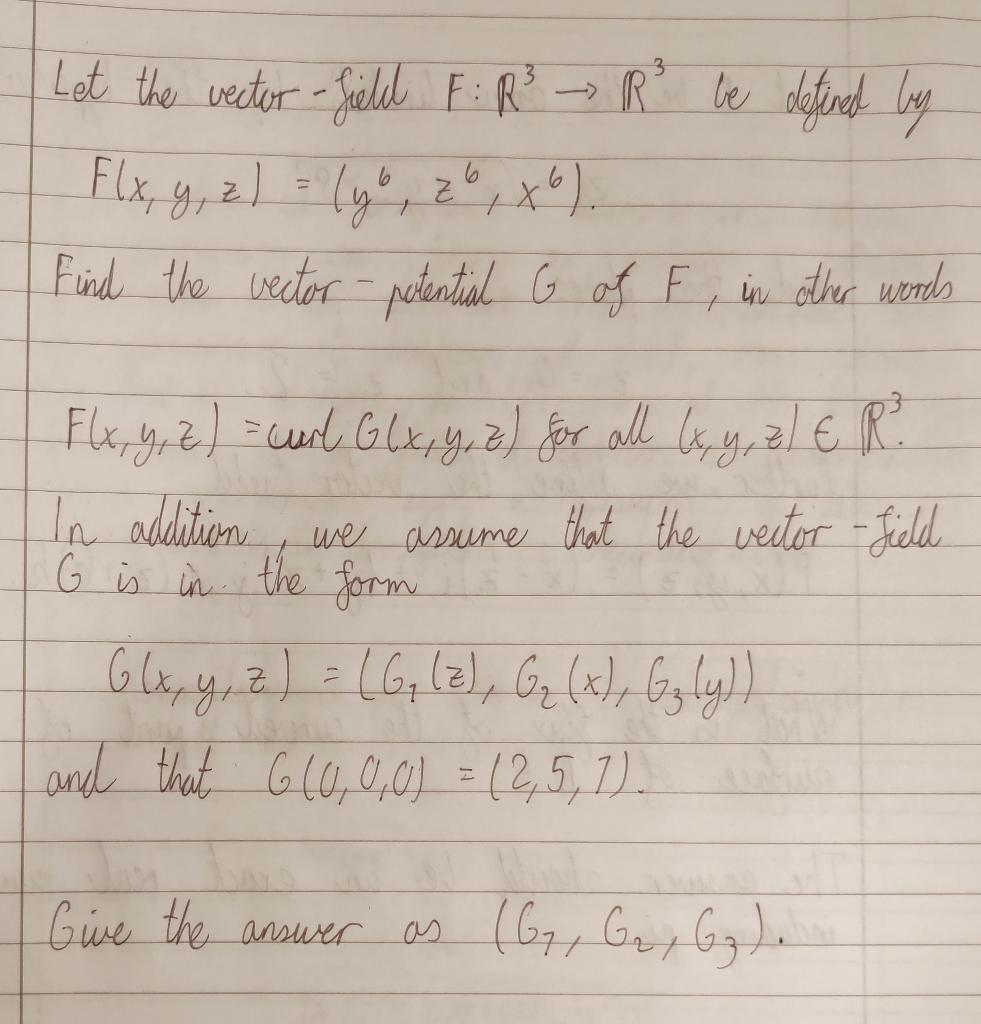 Let the vector-field F: ℝ³ → ℝ³ be defined by
F(x, y, z) = (y⁶, z⁶, x⁶).
Find the vector-potential G of F, in other words
F(x, y, z) = curl G(x, y, z) for all (x, y, z) ∈ ℝ³.
In addition, we assume that the vector-field
G is in the form
G(x, y, z) = (G₁(z), G₂(x), G₃(y))
and that G(0, 0, 0) = (2, 5, 7).
Give the answer as (G₁, G₂, G₃).